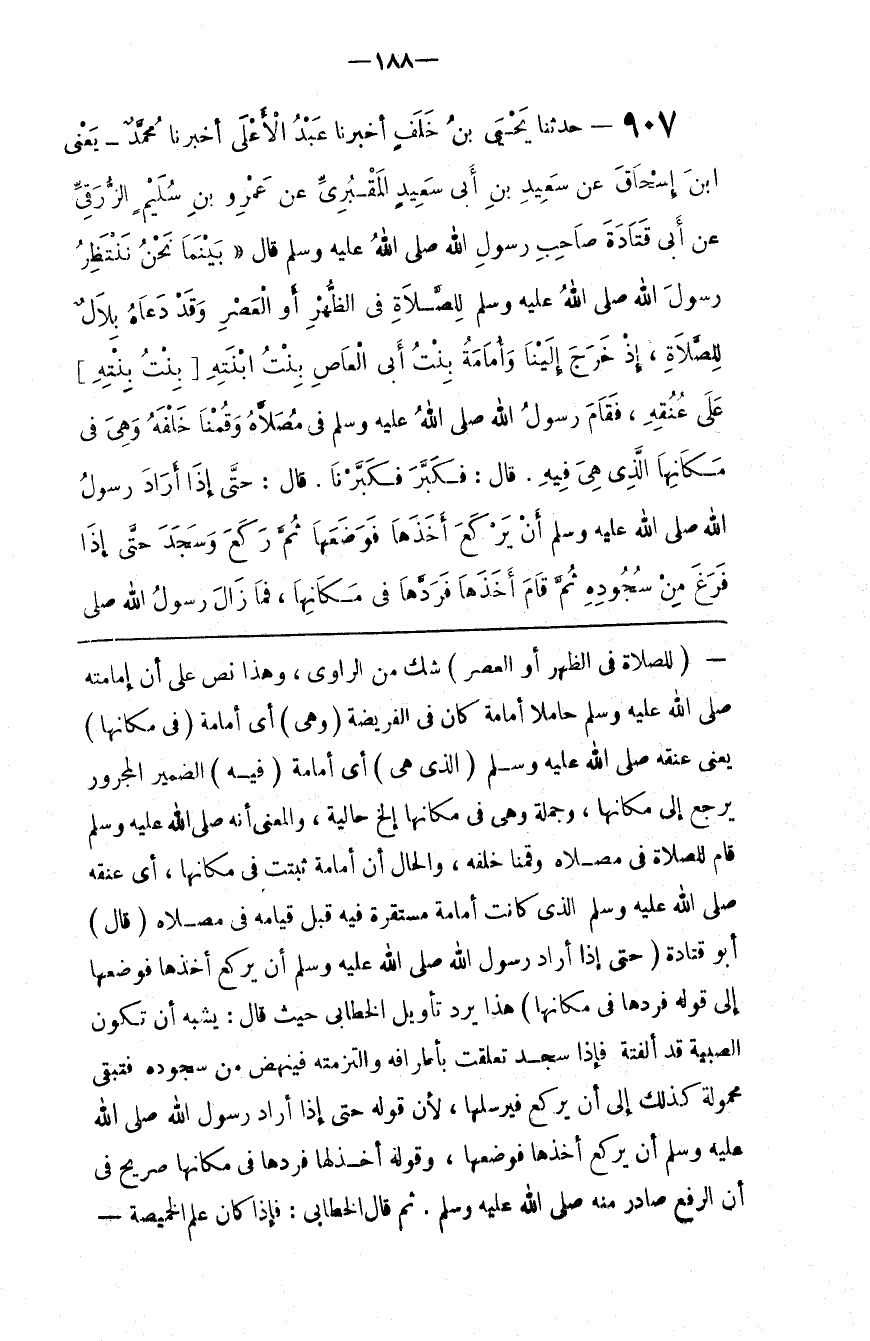 —١٨٨—
٩٠٧ — حدثنا يَحْيَى بنُ خَلَفٍ أخبرنا عَبْدُ الْأَعْلَى أخبرنا مُحمَّدٌ – يَعْنِى
ابنَ إِسْحَاقَ عن سَعِيدِ بنِ أَبى سَعِيدٍ المَقْبُرِىِّ عن عَمْرِو بنِ سُلَيْمٍ الزُّرَقِىِّ
عن أَبى قَتَادَةَ صَاحِبِ رسولِ الله صلى اللهُ عليه وسلم قال « بَيْنَمَا نَحْنُ نَنْتَظِرُ
رسولَ الله صلى اللهُ عليه وسلم لِلصَّلَاةِ فى الظُّهْرِ أَو الْعَصْرِ وَقَدْ دَعَاهُ بِلَالٌ
لِلصَّلَاةِ ، إِذْ خَرَجَ إِلَيْنَا وَأُمَامَةُ بِنْتُ أَبى الْعَاصِ بِنْتُ ابْنَتِهِ [ بِنْتُ بِنْتِهِ ]
عَلَى عُنُقِهِ ، فَقَامَ رسولُ الله صلى اللهُ عليه وسلم فى مُصَلَّاهُ وَقُمْنَا خَلْفَهُ وَهِىَ فى
مَكَانِهَا الَّذِى هِىَ فِيهِ . قال : فَكَبَّرَ فَكَبَّرْنَا . قال : حتَّى إِذَا أَرَادَ رسولُ
الله صلى الله عليه وسلم أَنْ يَرْكَعَ أَخَذَهَا فَوَضَعَهَا ثُمَّ رَكَعَ وَسَجَدَ حتَّى إِذَا
فَرَغَ مِنْ سُجُودِهِ ثُمَّ قَامَ أَخَذَهَا فَرَدَّهَا فى مَكَانِهَا ، فمَا زَالَ رسولُ الله صلى
— ( للصلاة فى الظهر أو العصر ) شك من الراوى ، وهذا نص على أن إمامته
صلى الله عليه وسلم حاملا أمامة كان فى الفريضة ( وهى ) أى أمامة ( فى مكانها )
يعنى عنقه صلى الله عليه وسلم ( الذى هى ) أى أمامة ( فيه ) الضمير المجرور
يرجع إلى مكانها ، وجملة وهى فى مكانها إلخ حالية ، والمعنى أنه صلى الله عليه وسلم
قام للصلاة فى مصلاه وقمنا خلفه ، والحال أن أمامة ثبتت فى مكانها ، أى عنقه
صلى الله عليه وسلم الذى كانت أمامة مستقرة فيه قبل قيامه فى مصلاه ( قال )
أبو قتادة ( حتى إذا أراد رسول الله صلى الله عليه وسلم أن يركع أخذها فوضعها
إلى قوله فردها فى مكانها ) هذا يرد تأويل الخطابى حيث قال : يشبه أن تكون
الصبية قد ألفتة فإذا سجد تعلقت بأطرافه والتزمته فينهض من سجوده فتبقى
محمولة كذلك إلى أن يركع فيرسلها ، لأن قوله حتى إذا أراد رسول الله صلى الله
عليه وسلم أن يركع أخذها فوضعها ، وقوله أخذلها فردها فى مكانها صريح فى
أن الرفع صادر منه صلى الله عليه وسلم . ثم قال الخطابى : فإذا كان علم الخميصة —